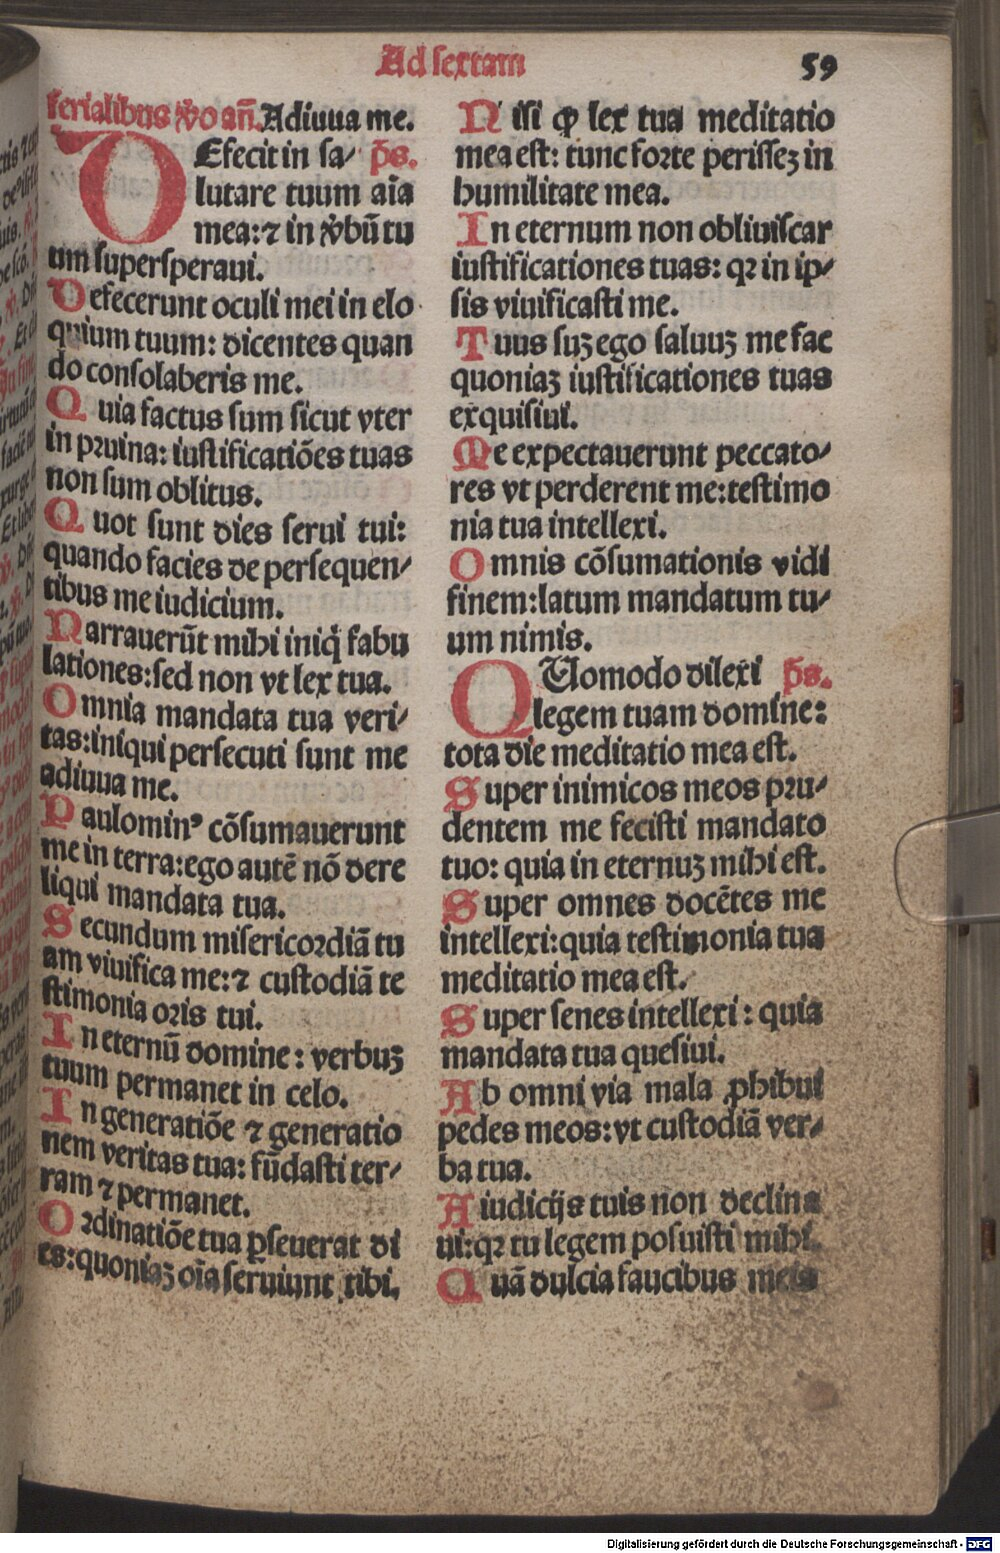 Ad sextam
59
ferialibus ꝟo añ. Adiuua me.
DEfecit in sa- p̄s.
lutare tuum aīa
mea: ⁊ in ꝟbū tu
um supersperaui.
Defecerunt oculi mei in elo
quium tuum: dicentes quan
do consolaberis me.
Quia factus sum sicut vter
in pruina: iustificatiōes tuas
non sum oblitus.
Quot sunt dies serui tui:
quando facies de persequen-
tibus me iudicium.
Narrauerūt mihi iniq̄ fabu
lationes: sed non vt lex tua.
Omnia mandata tua veri-
tas: iniqui persecuti sunt me
adiuua me.
Paulominꝰ cōsumauerunt
me in terra: ego autē nō dere
liqui mandata tua.
Secundum misericordiā tu
am viuifica me: ⁊ custodiā te
stimonia oris tui.
In eternū domine: verbuꝫ
tuum permanet in celo.
In generatiōe ⁊ generatio
nem veritas tua: fūdasti ter-
ram ⁊ permanet.
Ordinatiōe tua ꝑseuerat di
es: quoniaꝫ oīa seruiunt tibi.
Nisi ꝙ lex tua meditatio
mea est: tunc forte perisseꝫ in
humilitate mea.
In eternum non obliuiscar
iustificationes tuas: qꝛ in ip-
sis viuificasti me.
Tuus suꝫ ego saluuꝫ me fac
quoniaꝫ iustificationes tuas
exquisiui.
Me expectauerunt peccato-
res vt perderent me: testimo
nia tua intellexi.
Omnis cōsumationis vidi
finem: latum mandatum tu-
um nimis.
QUomodo dilexi p̄s.
legem tuam domine:
tota die meditatio mea est.
Super inimicos meos pru-
dentem me fecisti mandato
tuo: quia in eternuꝫ mihi est.
Super omnes docētes me
intellexi: quia testimonia tua
meditatio mea est.
Super senes intellexi: quia
mandata tua quesiui.
Ab omni via mala ꝓhibui
pedes meos: vt custodiā ver-
ba tua.
A iudicijs tuis non declina
ui: qꝛ tu legem posuisti mihi.
Quā dulcia faucibus meis
Digitalisierung gefördert durch die Deutsche Forschungsgemeinschaft - DFG